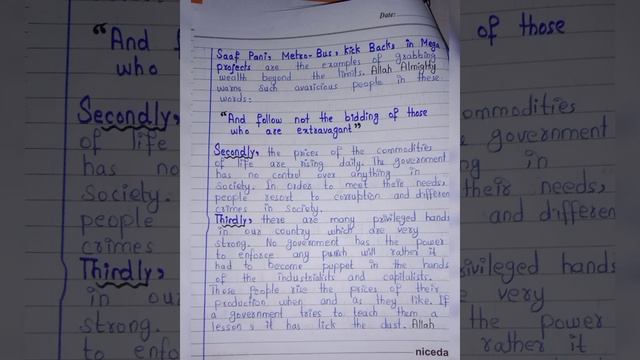 Date:
Saaf Pani, Metro-Bus, Kick Backs in Mega
projects are the examples of grabbing
wealth beyond the limits. Allah Almighty
warns such avaricious people in these
words:
"And follow not the bidding of those
who are extravagant"
Secondly, the prices of the commodities
of life are rising daily. The government
has no control over anything in
Society. In order to meet their needs,
people resort to corruption and different
crimes in society.
Thirdly, there are many privileged hands
in our country which are very
strong. No government has the power
to enforce any will rather it
had to become puppet in the hands
of the industrialists and capitalists.
These people rise the prices of their
production when and as they like. If
a government tries to teach them a
lesson, it has lick the dust. Allah
niceda
"And
who
Secondly,
of life
has no
Society.
people
crimes
Thirdly,
in our
strong.
to enfo
of those
ommodities
government
in
their needs,
and differen
ivileged hands
very
the power
rather it